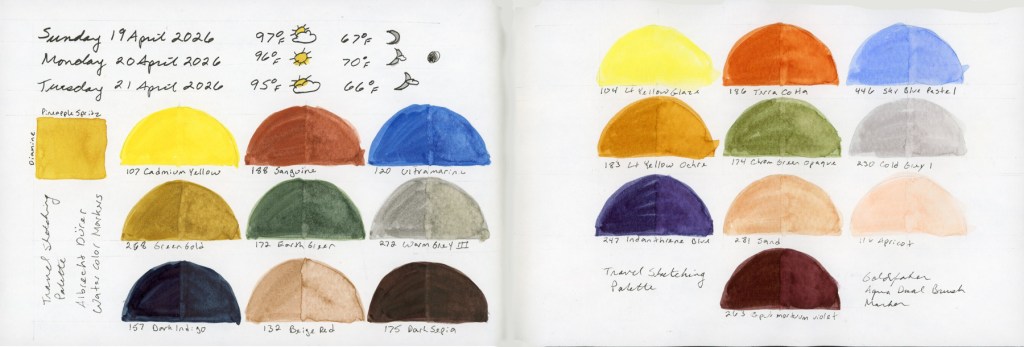 Sunday 19 April 2026 97°F 67°F
Monday 20 April 2026 96°F 70°F
Tuesday 21 April 2026 95°F 66°F
Pineapple Spritz
Diamine
107 Cadmium Yellow
188 Sanguine
120 Ultramarine
268 Green Gold
172 Earth Green
273 Warm Grey III
157 Dark Indigo
132 Beige Red
175 Dark Sepia
Travel Sketching
Palette
Albrecht Dürer
Water Color Markers
104 Lt Yellow Glaze
186 Terra Cotta
446 Sky Blue Pastel
183 Lt Yellow Ochre
174 Chrom Green Opaque
230 Cold Gray I
247 Indanthrene Blue
281 Sand
116 Apricot
263 Caput mortuum violet
Travel Sketching
Palette
Goldfaber
Aqua Dual Brush
Marker